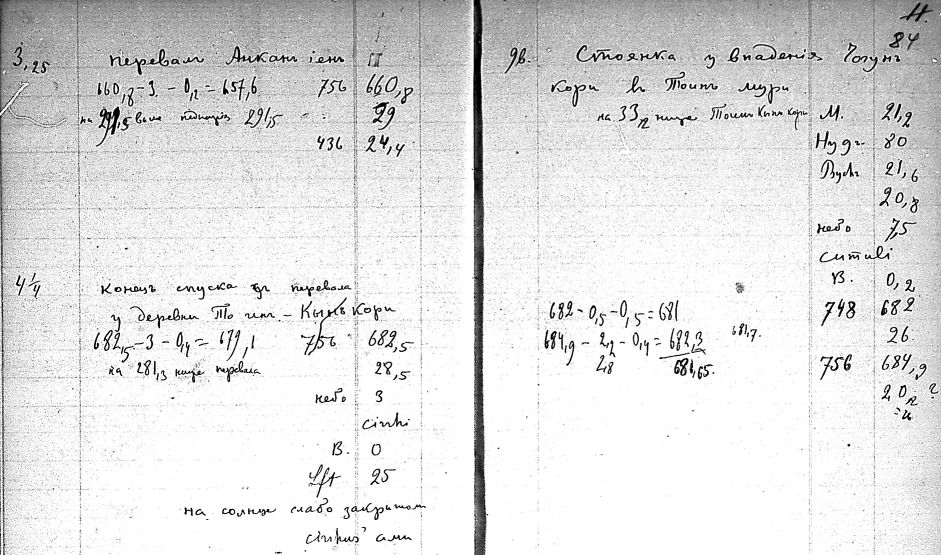 3,25 Перевалъ Анканъ iенъ II
660,8 - 3 - 0,2 = 657,6 756 660,8
на 291,5 выше 291,5 29
436 24,4
4 1/4 Конецъ спуска съ перевала
у деревни То - Кынъ Кори
682,5 - 3 - 0,4 = 679,1 756 682,5
на 281,3 ниже перевала 28,5
небо 3
cirrhi
В. 0
Lft 25
на солнце слабо закрытомъ
cirrhus'ами
84
9в. Стоянка у впаденiя Чогунъ
Кори въ Тоинъ мури
на 33,2 ниже Тоинъ Кынъ кори М. 21,2
80
21,6
20,8
небо 7,5
cumuli
В. 0,2
682 - 0,5 - 0,5 = 681 748 682
26.
684,9 - 2,2 - 0,4 = 682,3 681,7.
2,8 681,65.
756 684,9
20,2 ?